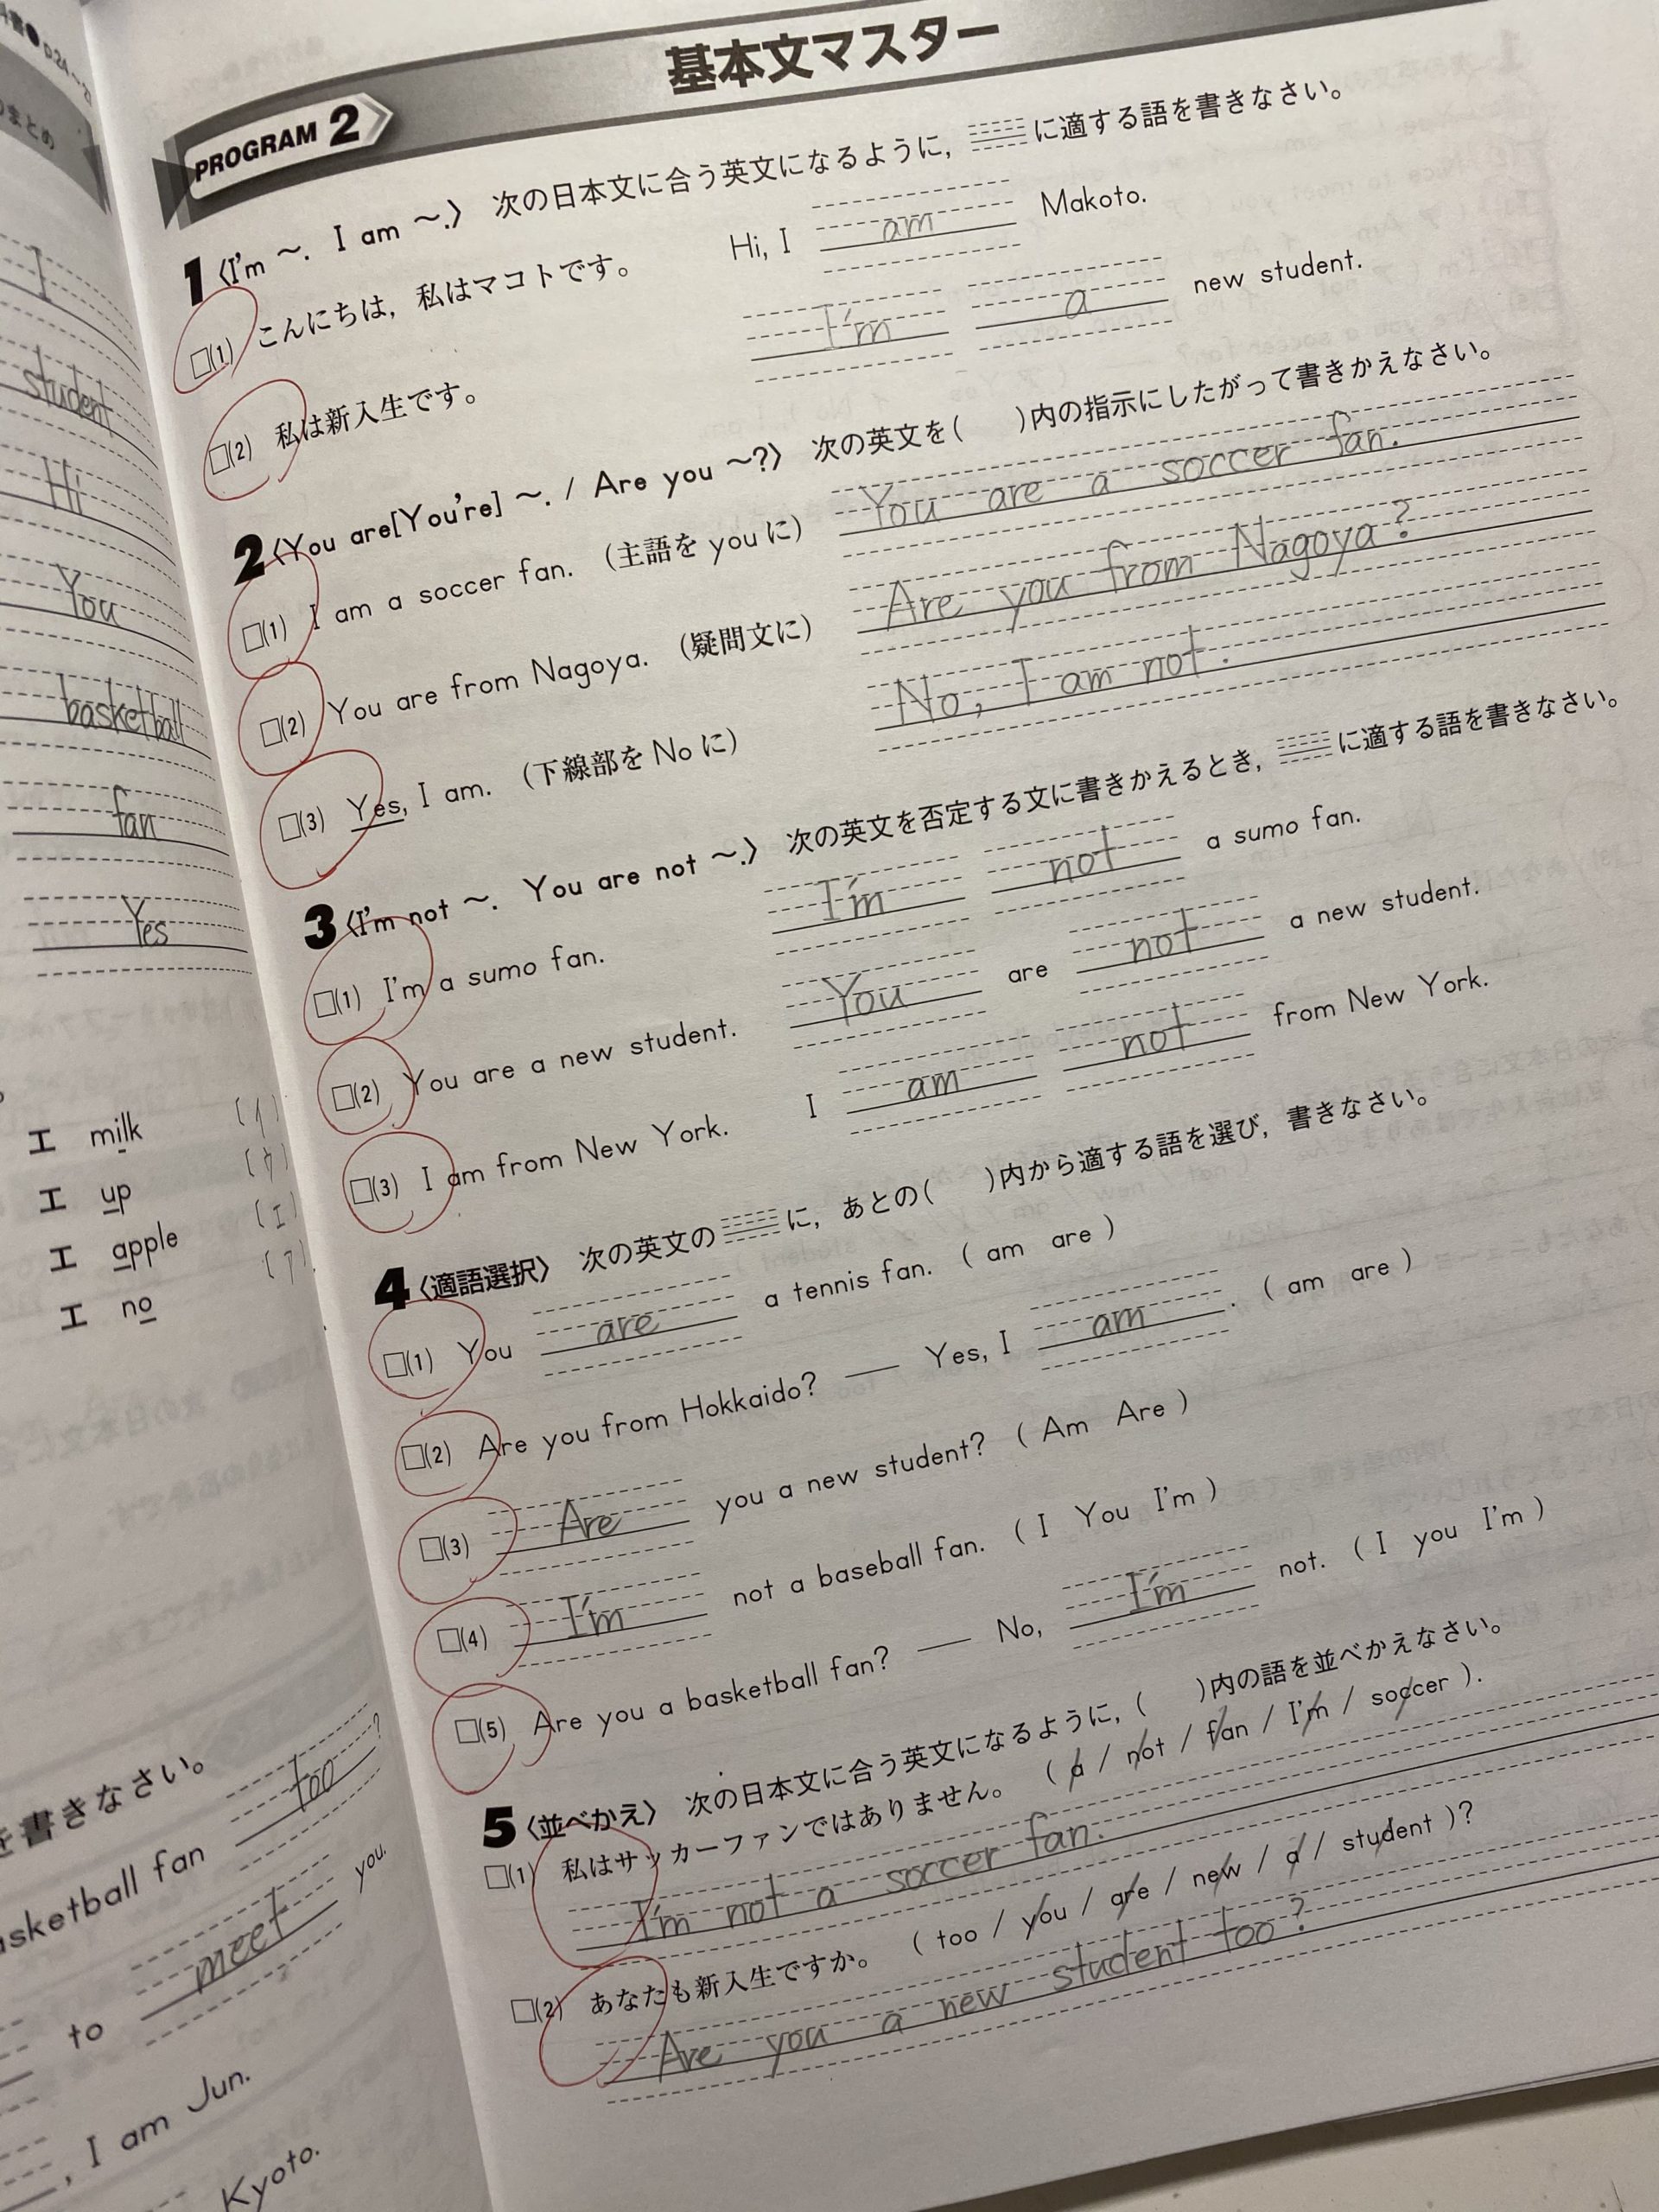 p.24～2
のまとめ
I
student
Hi
You
basketball
fan
Yes
エ milk 〔イ〕
エ up 〔ウ〕
エ apple 〔エ〕
エ no 〔ア〕
を書きなさい。
basketball fan too ?
to meet you.
, I am Jun.
Kyoto.
PROGRAM 2 基本文マスター
1 〈I'm ～. I am ～.〉 次の日本文に合う英文になるように，に適する語を書きなさい。
□(1) こんにちは，私はマコトです。 Hi, I am Makoto.
□(2) 私は新入生です。 I'm a new student.
2 〈You are[You're] ～. / Are you ～?〉 次の英文を( )内の指示にしたがって書きかえなさい。
□(1) I am a soccer fan. (主語を you に) You are a soccer fan.
□(2) You are from Nagoya. (疑問文に) Are you from Nagoya?
□(3) Yes, I am. (下線部を No に) No, I am not.
3 〈I'm not ～. You are not ～.〉 次の英文を否定する文に書きかえるとき，に適する語を書きなさい。
□(1) I'm a sumo fan. I'm not a sumo fan.
□(2) You are a new student. You are not a new student.
□(3) I am from New York. I am not from New York.
4 〈適語選択〉 次の英文のに，あとの( )内から適する語を選び，書きなさい。
□(1) You are a tennis fan. ( am are )
□(2) Are you from Hokkaido? — Yes, I am. ( am are )
□(3) Are you a new student? ( Am Are )
□(4) I'm not a baseball fan. ( I You I'm )
□(5) Are you a basketball fan? — No, I'm not. ( I you I'm )
5 〈並べかえ〉 次の日本文に合う英文になるように，( )内の語を並べかえなさい。
□(1) 私はサッカーファンではありません。 ( a / not / fan / I'm / soccer ).
I'm not a soccer fan.
□(2) あなたも新入生ですか。 ( too / you / are / new / a / student )?
Are you a new student too?